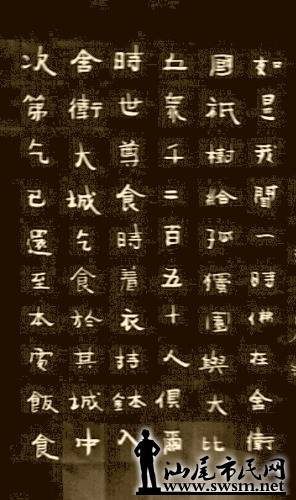 如是我聞一時佛在舍衛
國祇樹給孤獨園與大比
丘眾千二百五十人俱爾
時世尊食時着衣持鉢入
舍衛大城乞食於其城中
次第乞已還至本處飯食
汕尾市民网
www.swsm.net